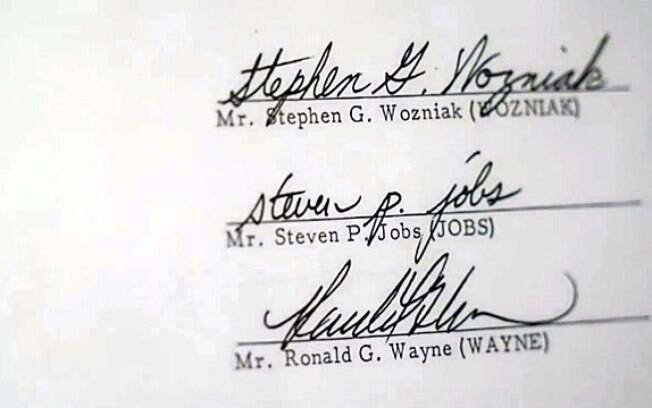 Stephen G. Wozniak
Mr. Stephen G. Wozniak (WOZNIAK)
steven p. jobs
Mr. Steven P. Jobs (JOBS)
Mr. Ronald G. Wayne (WAYNE)